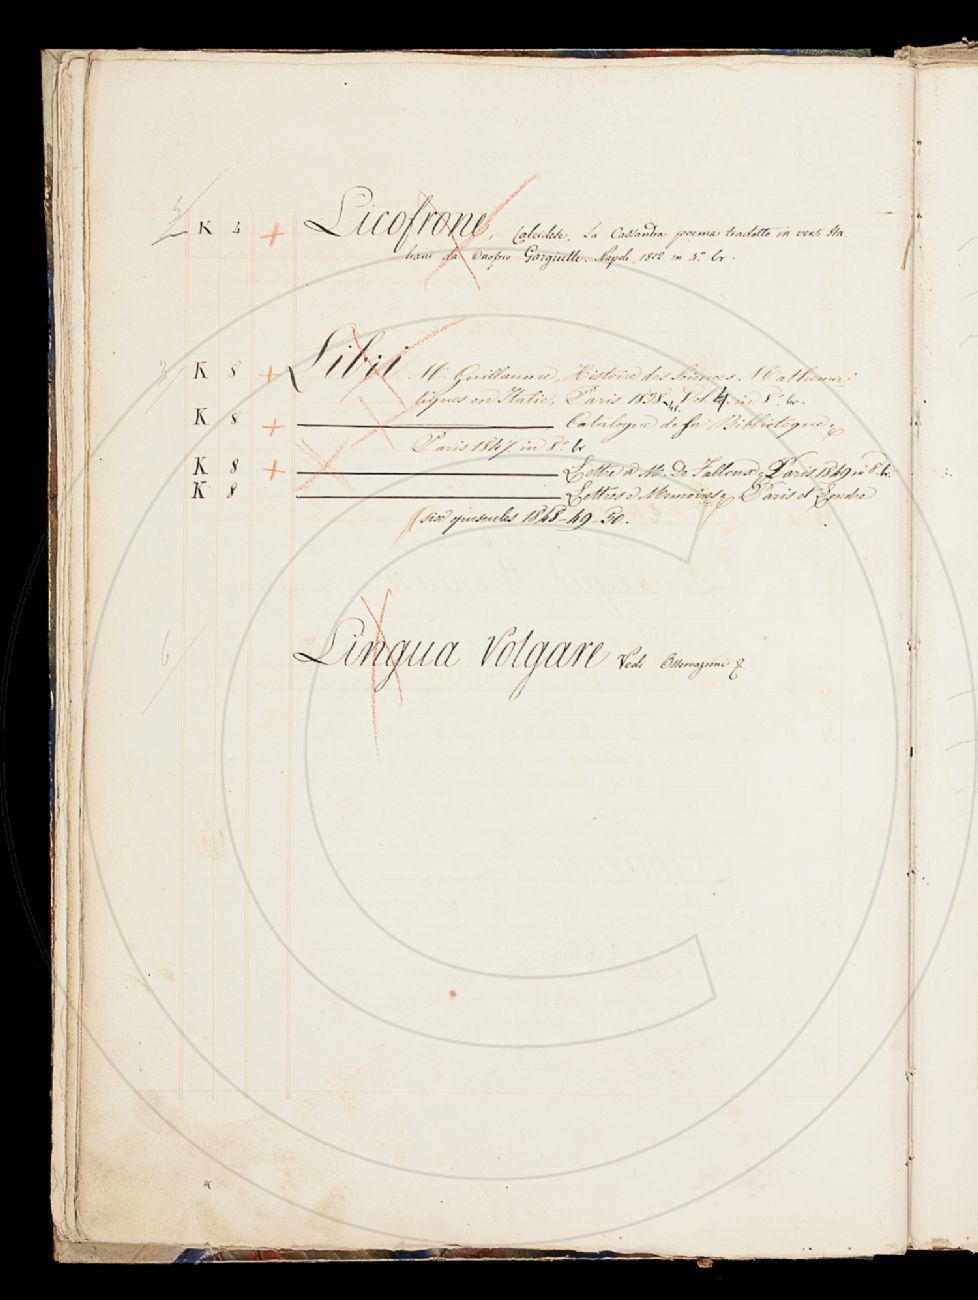 K 4 + Licofrone, Calcidese, La Cassandra poema tradotto in versi Ita
liani da Onofrio Gargiulli. Napoli, 1812 in 4.° br.
K 8 + Libri M. Guillaume, Histoire des Sciences Mathema-
tiques en Italie, Paris 1838-41, Vol 4. in 8.° br.
K 8 + Catalogue de sa Biblioteque,
Paris 1847. in 8.° br
K 8 + Lettre a Mr. De Falloux, Paris 1849 in 8.° br.
K 8 Lettres e Memoires, Paris et Londre
six opuscules 1848-49-50.
6
Lingua Volgare Vedi Osservazioni &.